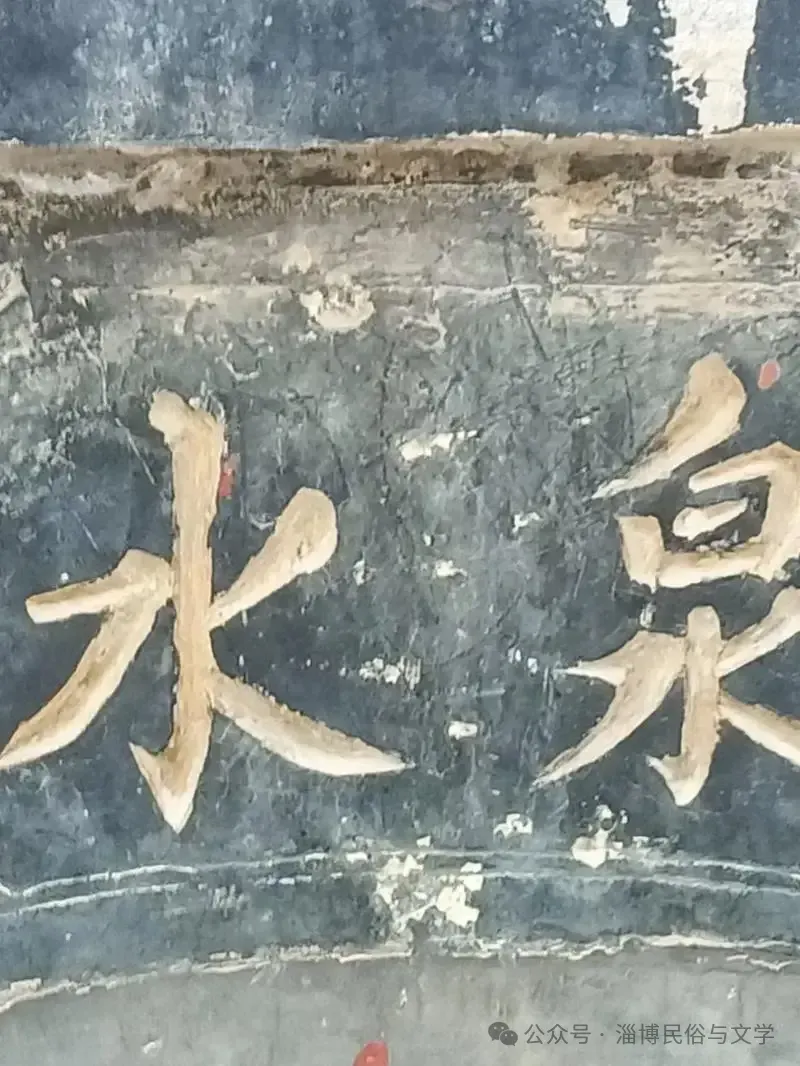 水泉
公众号·淄博民俗与文学